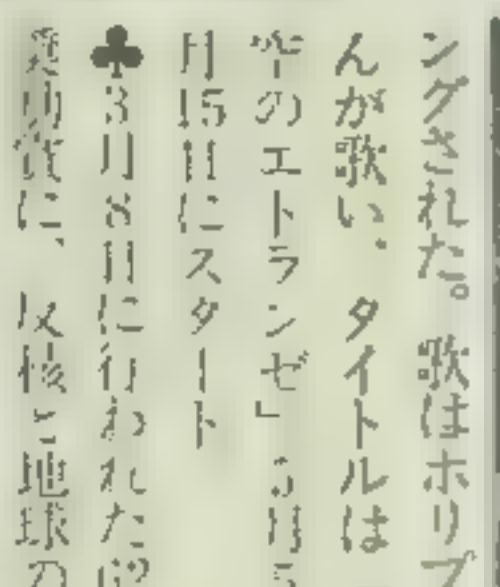 ングされた。歌はホリプ
んが歌い、タイトルは
のエトランゼ」
月15日にスタート
♣3月8日に行われた
に、反核と地球の